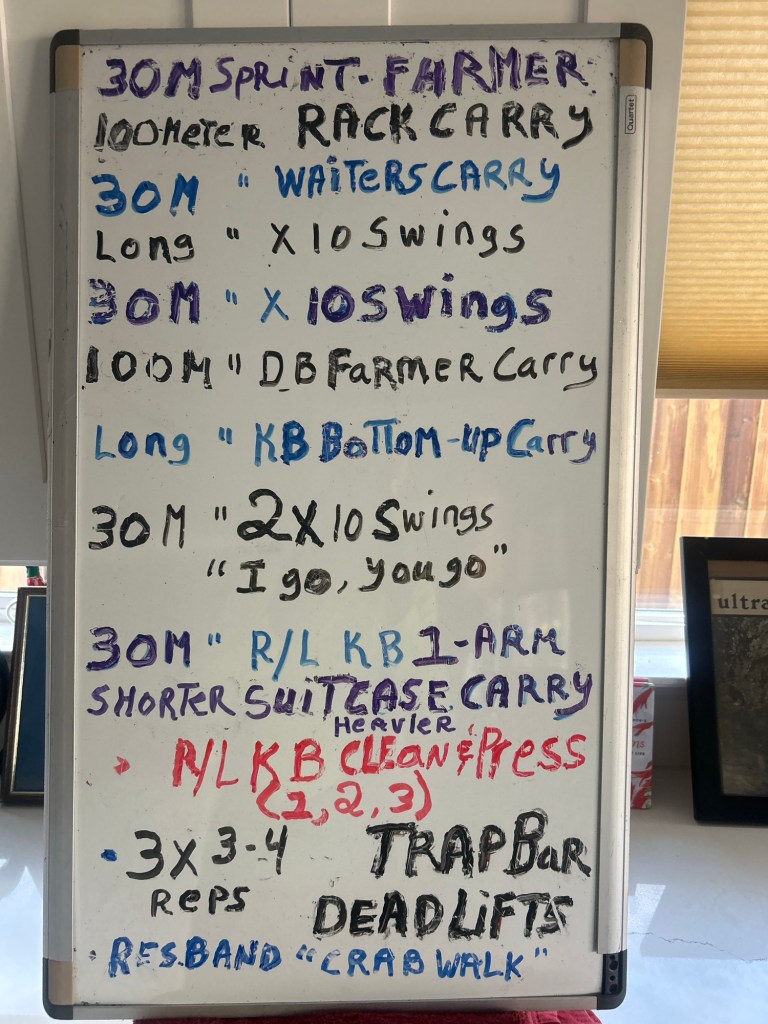 30M SPRINT - FARMER
100 METER RACK CARRY
30M " WAITERS CARRY
Long " X 10 Swings
30M " X 10 Swings
100M " DB FARMER Carry
Long " KB BOTTOM-UP Carry
30M " 2X10 Swings
"I go, you go"
30M " R/L KB 1-ARM
SHORTER SUITCASE CARRY
HEAVIER
R/L KB CLEAN & PRESS
(1, 2, 3)
• 3X 3-4 TRAP BAR
REPS DEADLIFTS
• RES.BAND "CRAB WALK"
Quartet
ultra